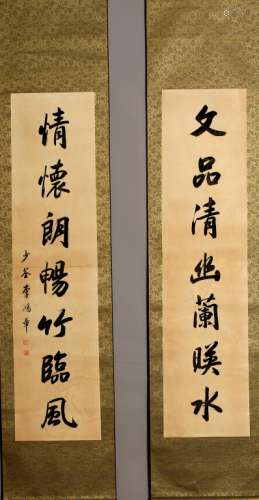 文品清幽蘭暎水
情懷朗暢竹臨風
少荃李鴻章